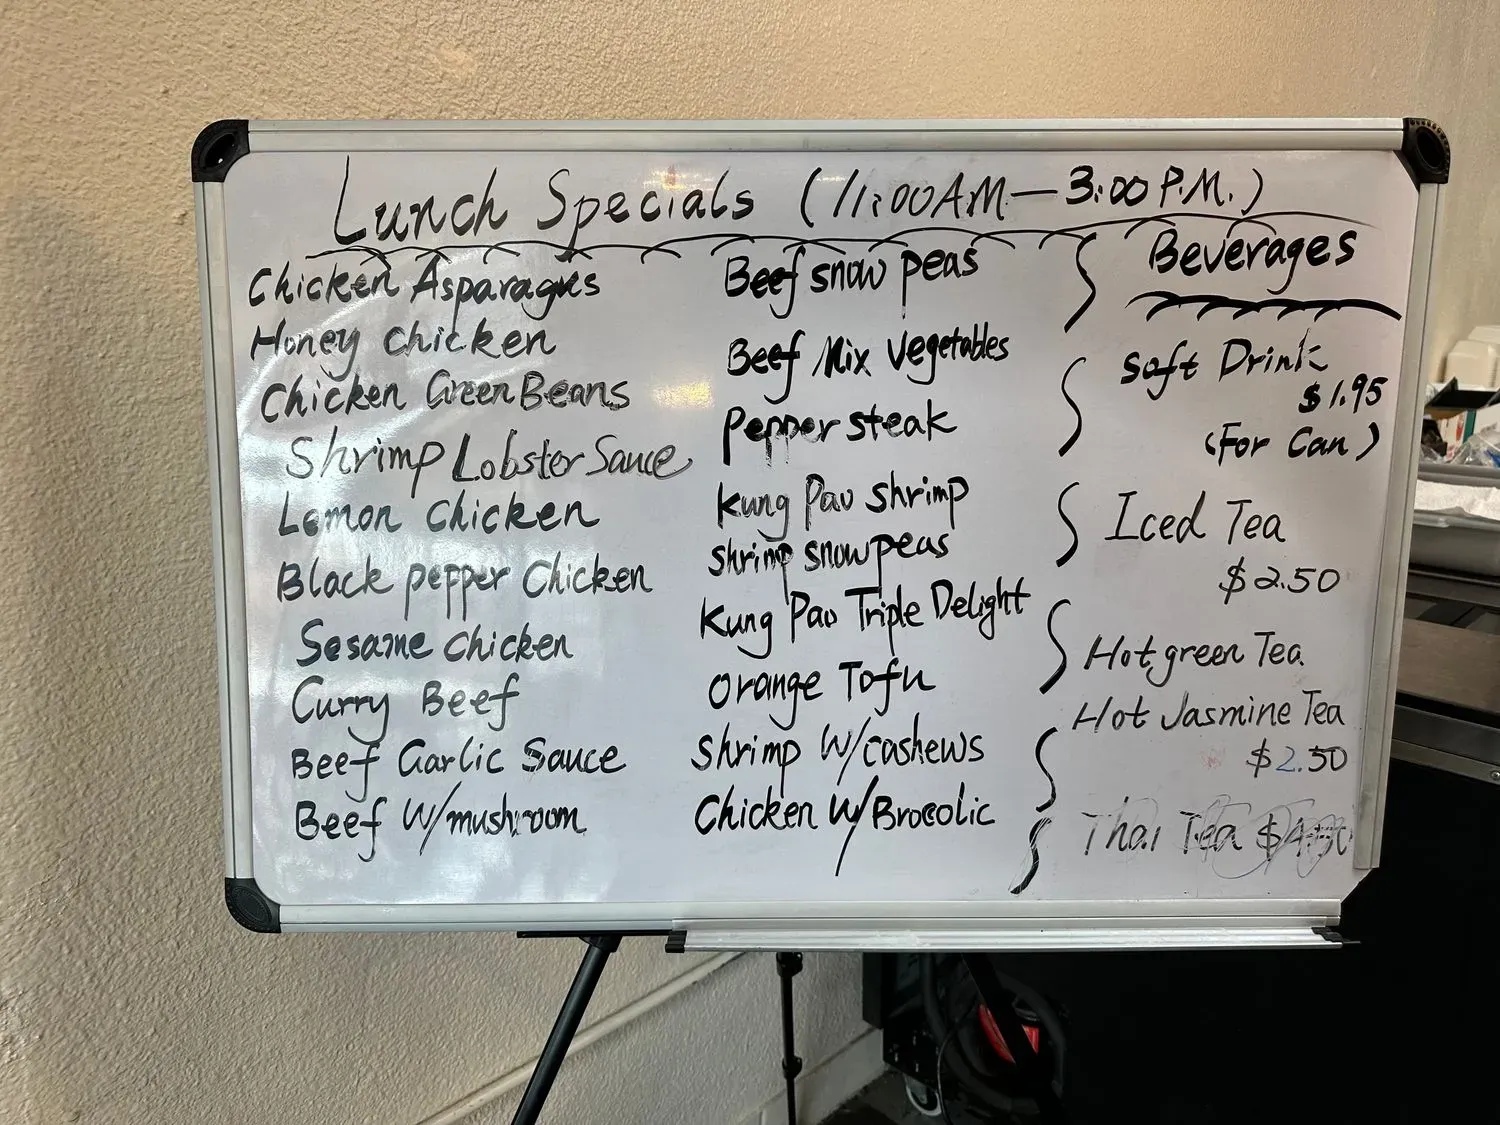 Lunch Specials (11:00AM — 3:00P.M.)
Chicken Asparagus
Honey chicken
Chicken Green Beans
Shrimp Lobster Sauce
Lemon chicken
Black pepper Chicken
Sesame chicken
Curry Beef
Beef Garlic Sauce
Beef w/mushroom
Beef snow peas
Beef Mix Vegetables
Pepper steak
Kung Pao shrimp
Shrimp snow peas
Kung Pao Triple Delight
Orange Tofu
Shrimp w/cashews
Chicken w/Brocolic
Beverages
Soft Drink
$1.95
(For Can)
Iced Tea
$2.50
Hot green Tea
Hot Jasmine Tea
$2.50
Thai Tea